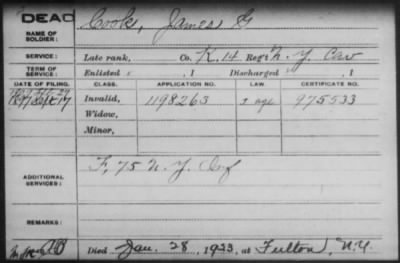 DEAD
NAME OF SOLDIER: Cook, James G
SERVICE: Late rank, Co. K. 14 Reg't N. Y. Cav
TERM OF SERVICE: Enlisted , 1 Discharged , 1
DATE OF FILING. CLASS. APPLICATION NO. LAW. CERTIFICATE NO.
Invalid, 1198263 975533
Widow,
Minor,
ADDITIONAL SERVICES: F, 75 N. Y. Inf
REMARKS:
Died Jan. 28, 1933, at Fulton, N.Y.